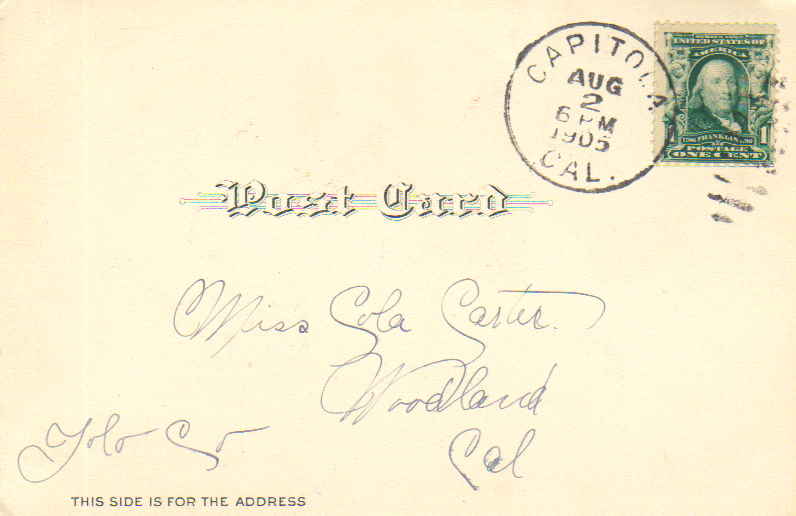 CAPITOLA
AUG
2
6 PM
1905
CAL.
UNITED STATES OF
AMERICA
1706 FRANKLIN 1790
1 POSTAGE 1
ONE CENT
Post Card
Miss Lola Carter.
Woodland
Yolo Co
Cal
THIS SIDE IS FOR THE ADDRESS